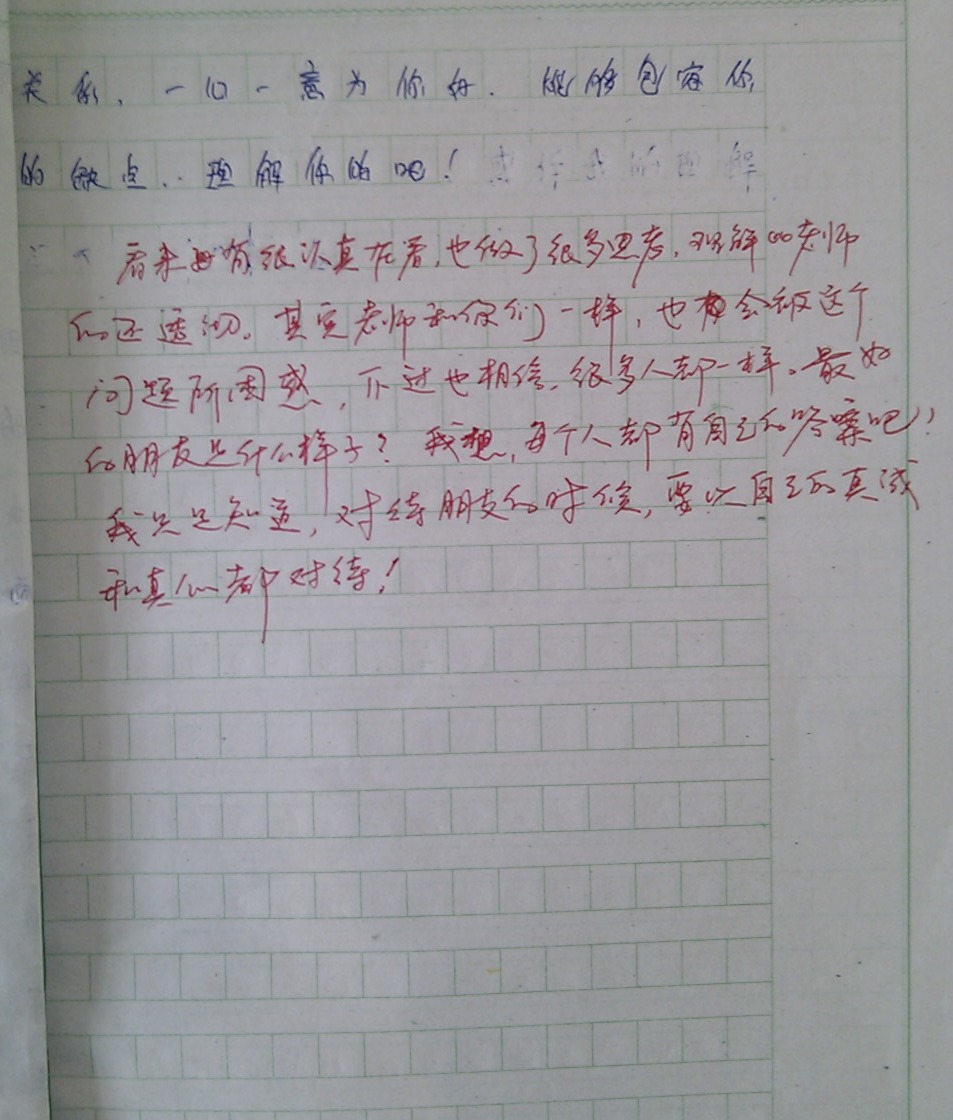 关系，一心一意为你好．能够包容你
的缺点．．理解你的吧！
看来有很认真在看，也做了很多思考，理解的老师
的还透彻。其实老师和你们一样，也会被这个
问题所困惑，不过也相信，很多人都一样。最好
的朋友是什么样子？我想，每个人都有自己的答案吧！
我只是知道，对待朋友的时候，要以自己的真诚
和真心都对待！